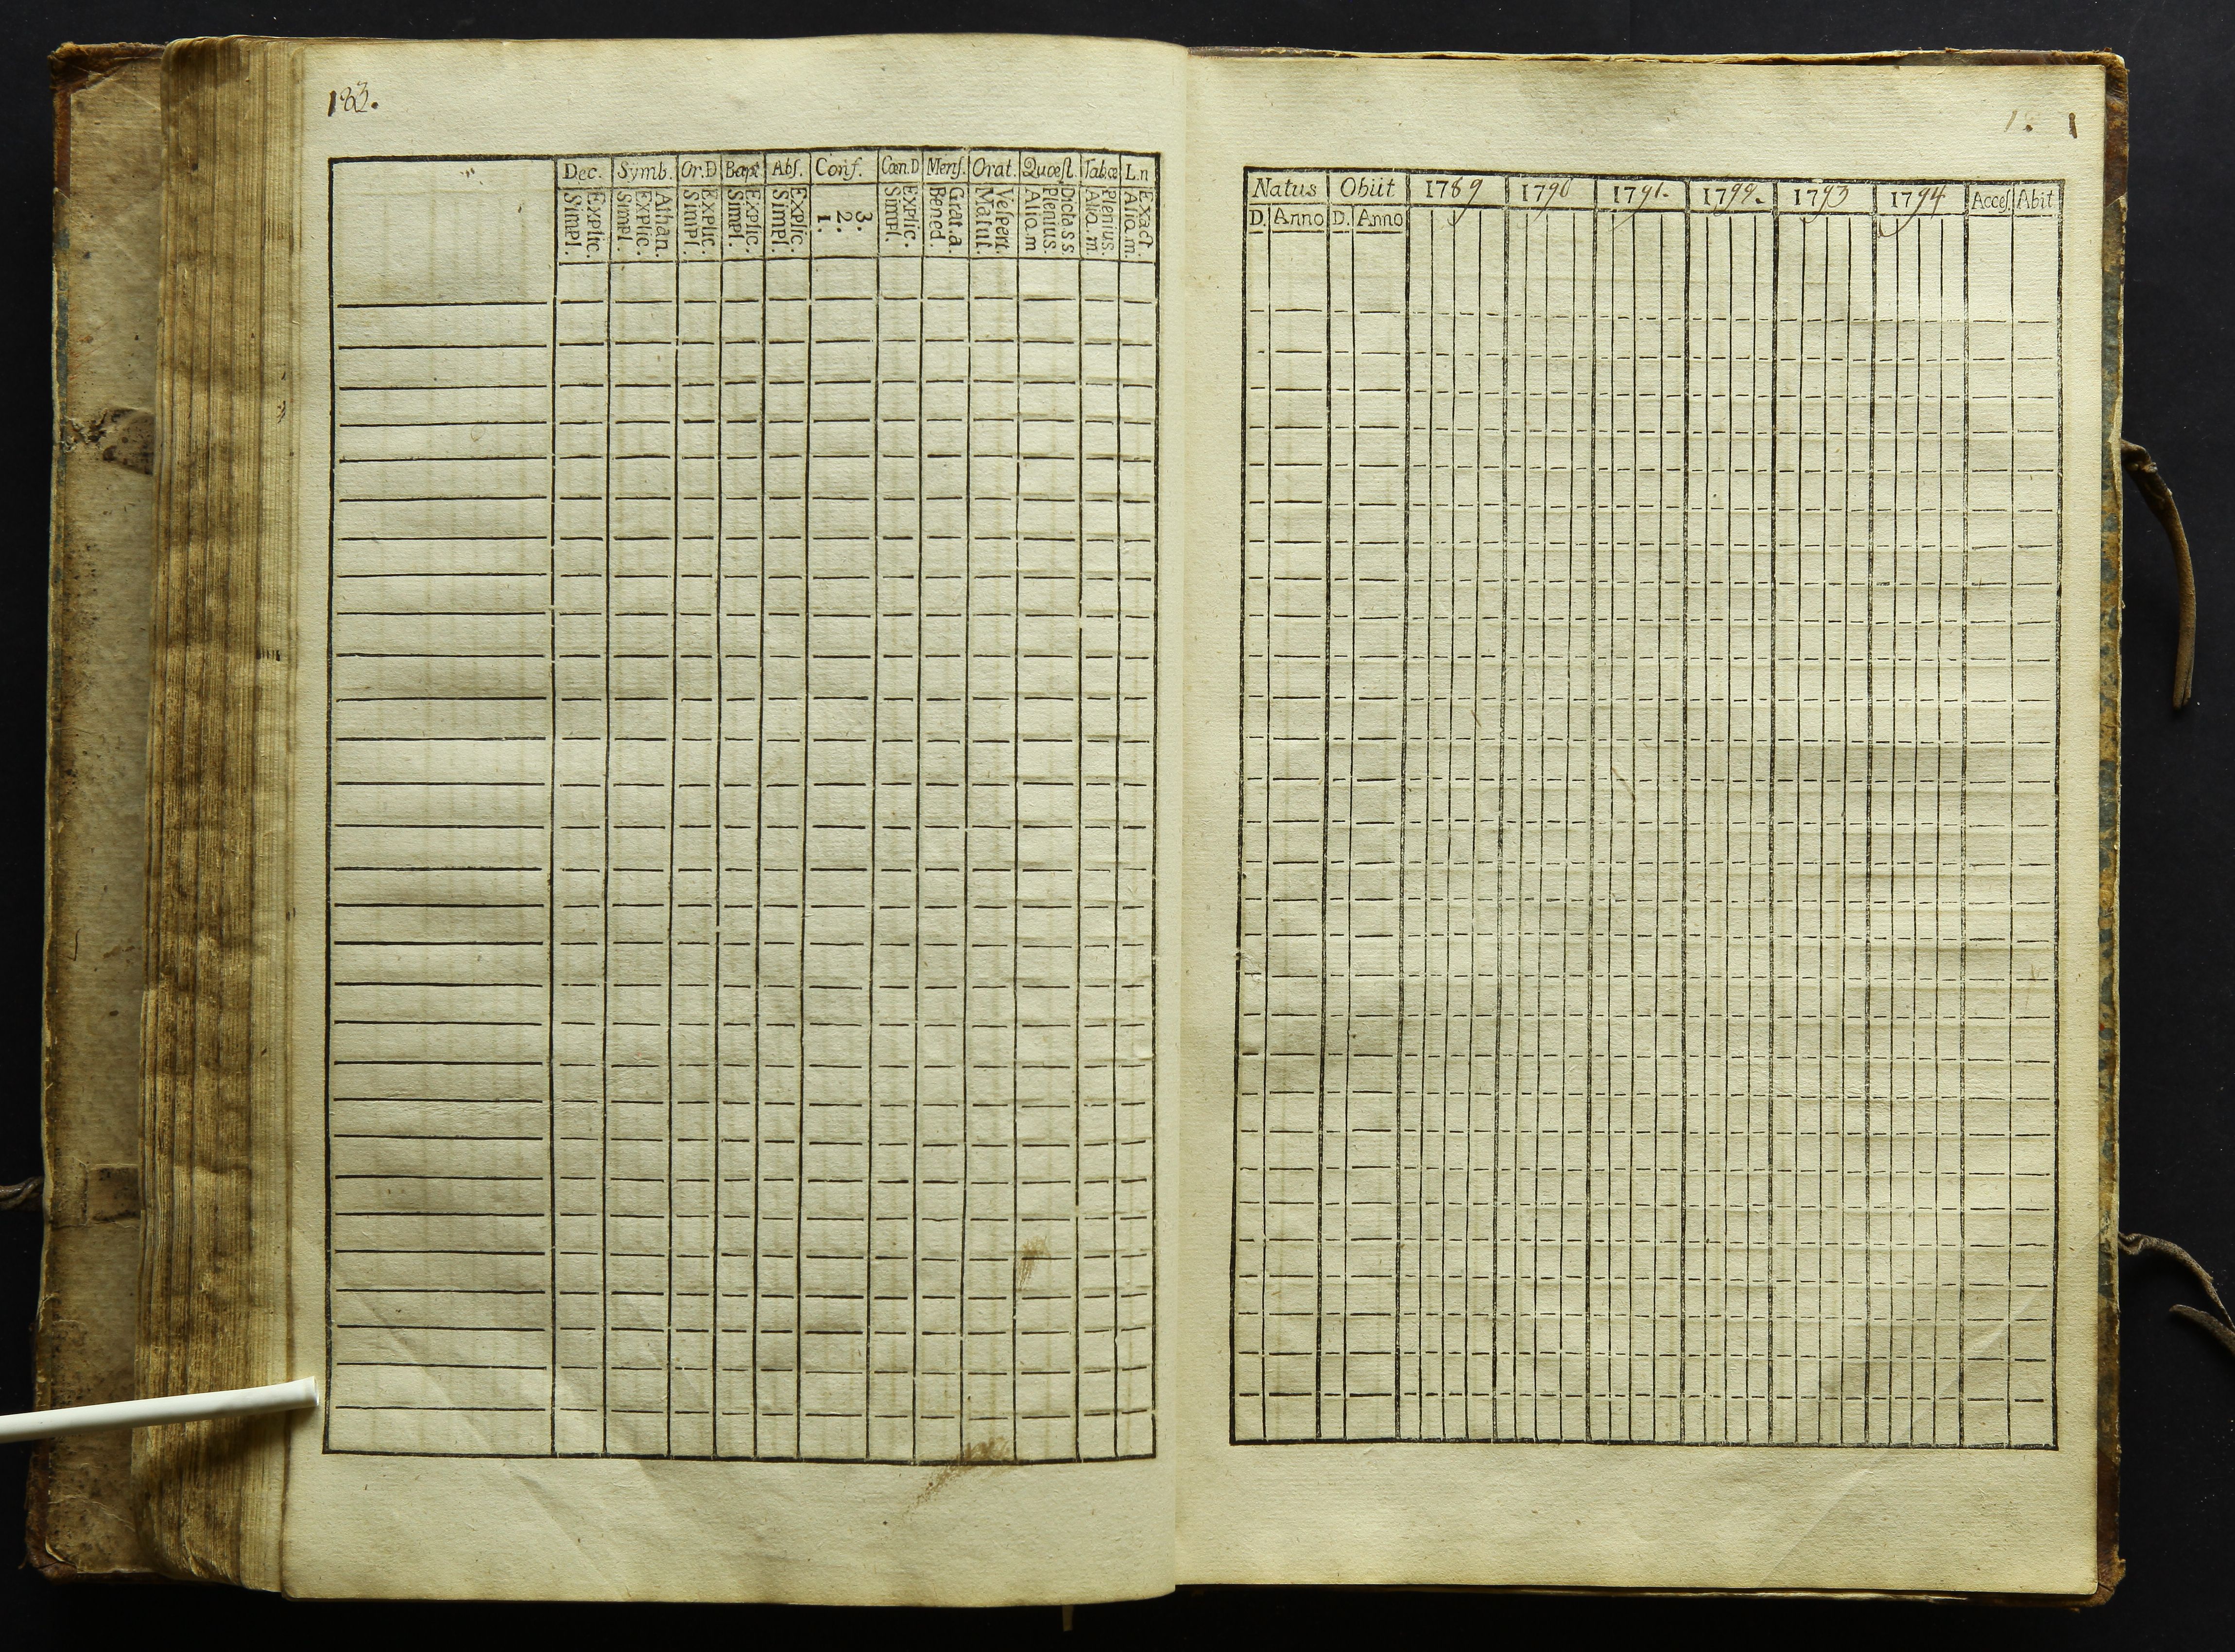 183.
Dec. Symb. Or.D Bapt Abſ. Conf. Cœn.D Menſ. Orat. Quœſt. Tab.œ L.n
Explic. Simpl.
Athan. Explic. Simpl.
Explic. Simpl.
Explic. Simpl.
Explic. Simpl.
3. 2. 1.
Explic. Simpl.
Grat.a. Bened.
Veſpert. Matut.
Dicta s s Plenius. Alio.m
Plenius. Alio.m.
Exact Alio.m.
Natus Obiit 1789 1790 1791. 1792. 1793 1794 Acceſ Abit
D. Anno D. Anno